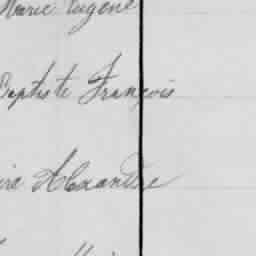 Marie Eugène
Baptiste François
Alexandre